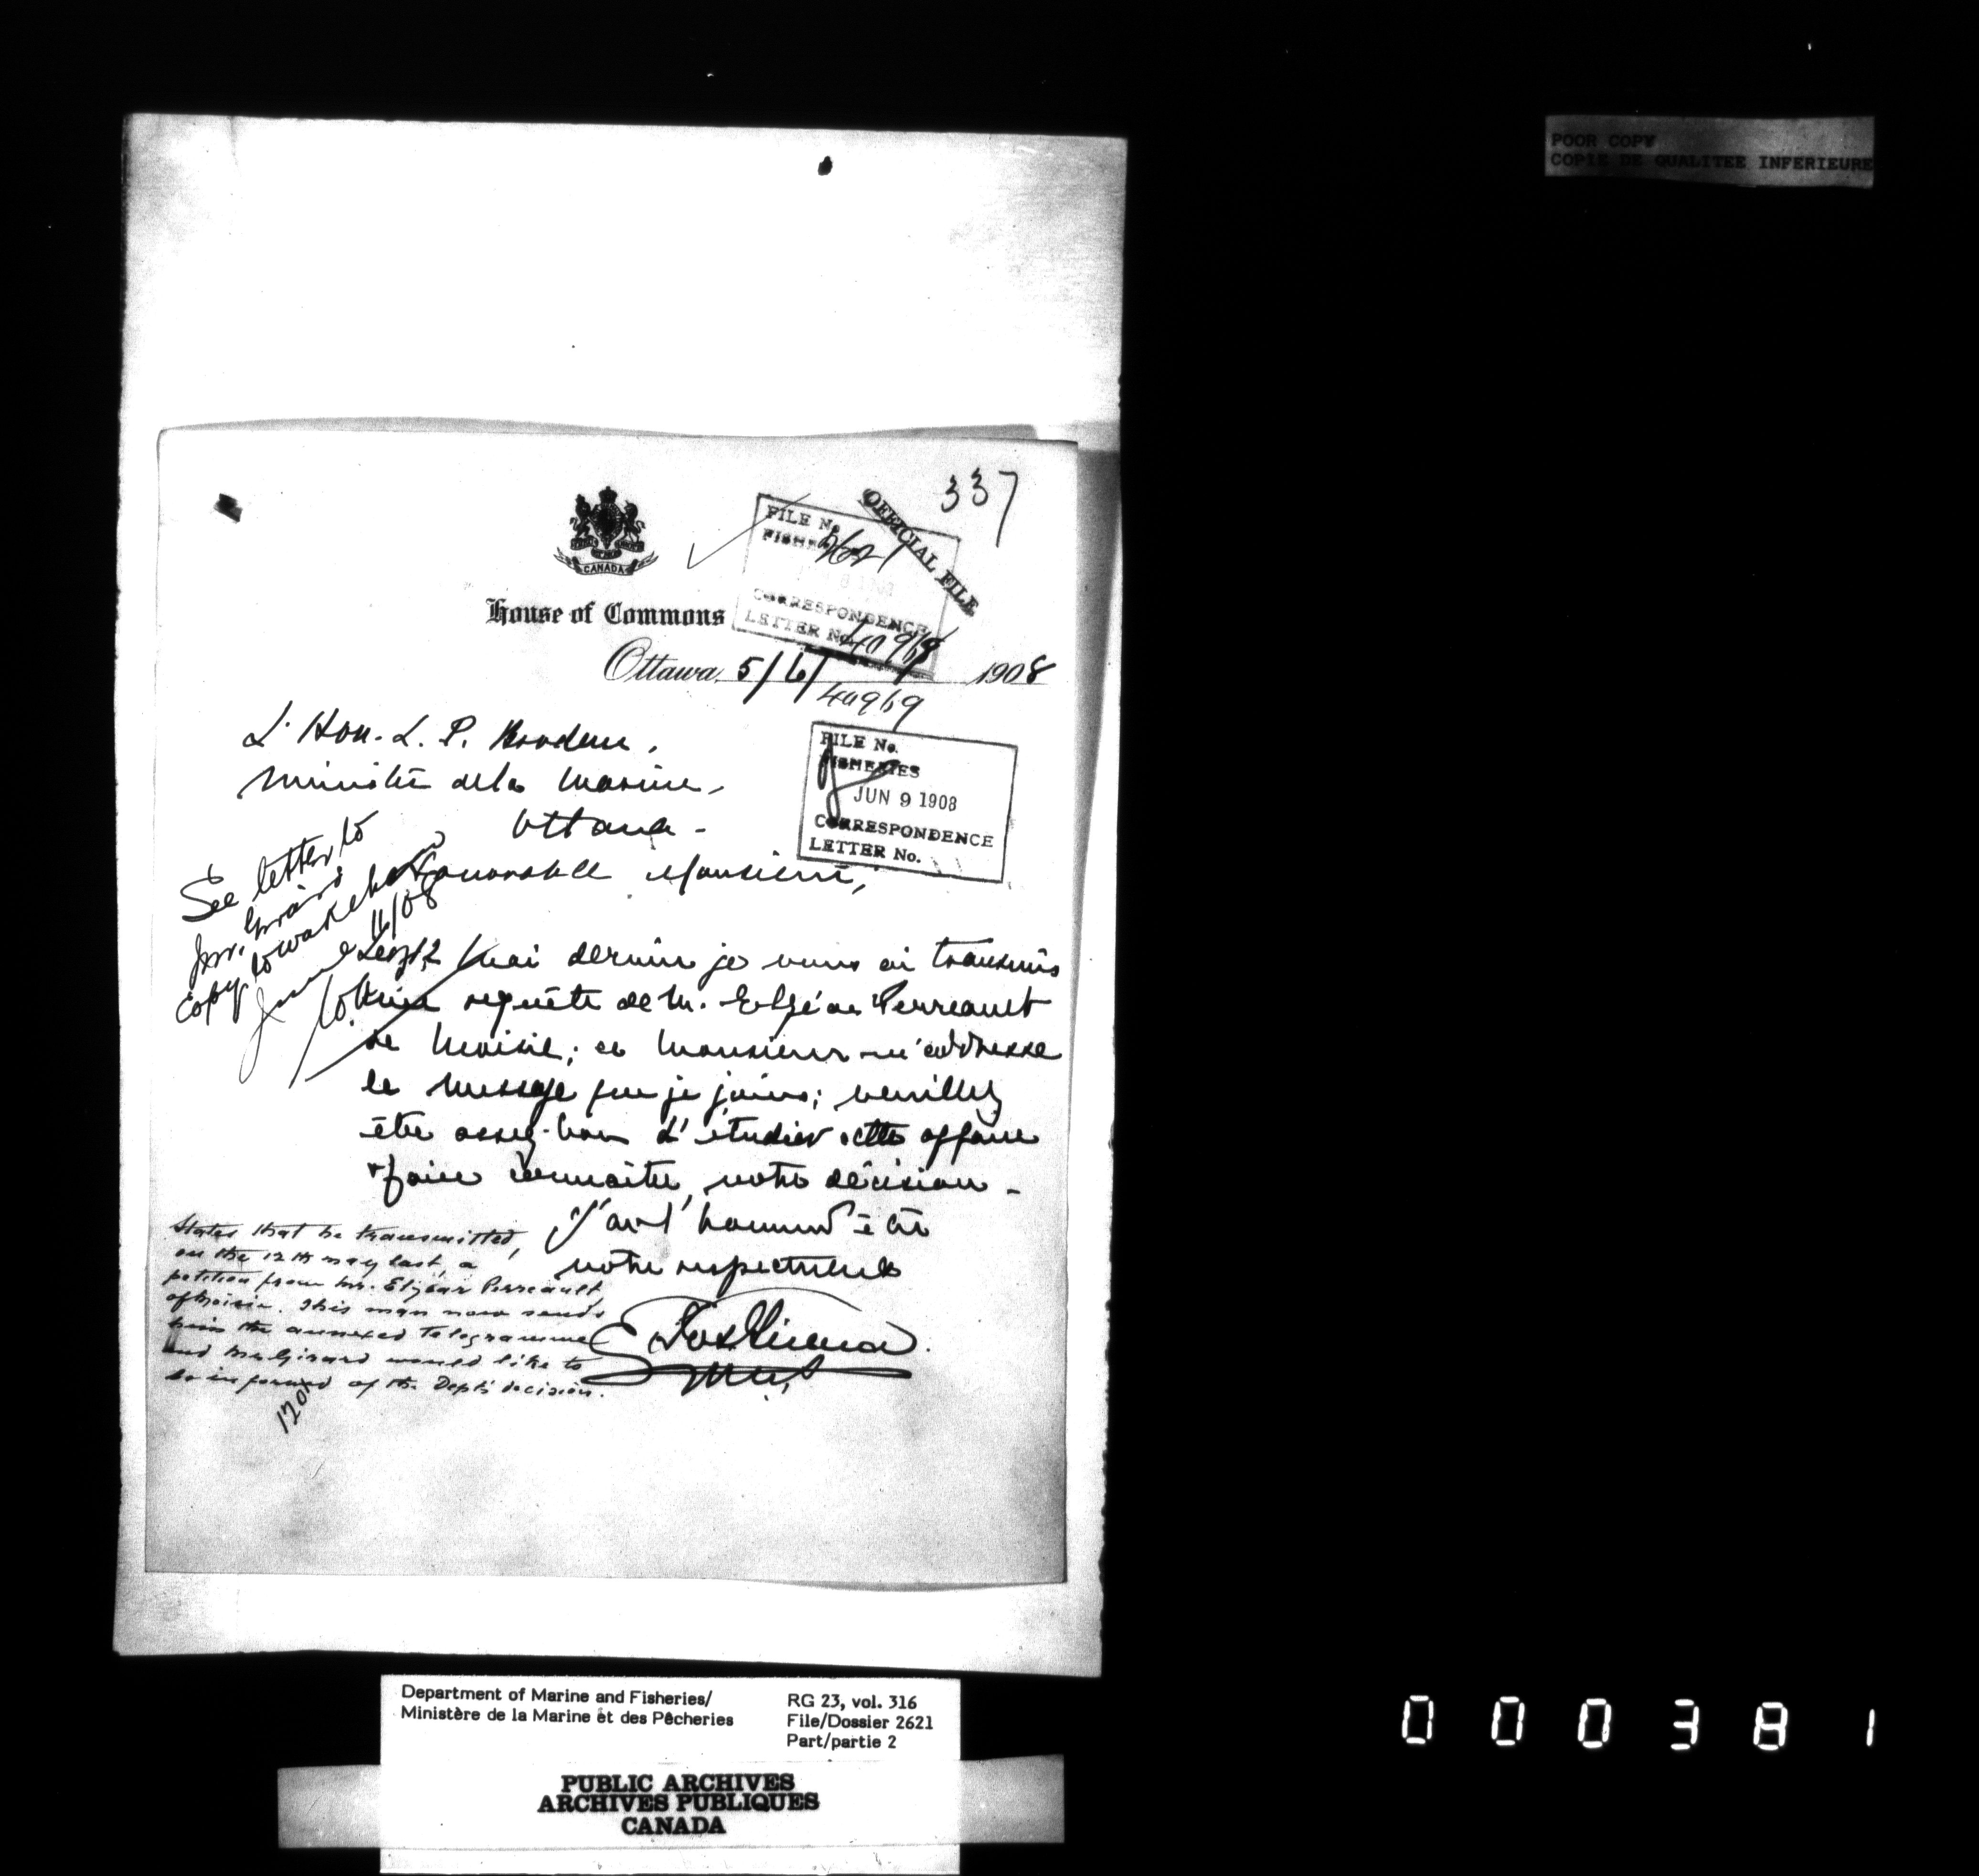 POOR COPY
COPIE DE QUALITEE INFERIEURE
337
OFFICIAL FILE
FILE No. 2621
FISHERIES
8 1908
CORRESPONDENCE
LETTER No. 40969
CANADA
House of Commons
Ottawa, 5/6/ 1908
40969
L'Hon. L. P. Brodeur,
Ministre de la Marine,
Ottawa -
FILE No.
FISHERIES
JUN 9 1908
CORRESPONDENCE
LETTER No.
Honorable Monsieur,
See letter to
Mr. Girard
Copy to Wakeham
June 11/08
Le 12 Mai dernier je vous ai transmis
une requête de M. Elzéar Perreault
de Moisie; ce Monsieur m'addresse
le message que je joins; veuillez
être assez bon d'étudier cette affaire
& faire connaître votre décision -
J'ai l'honneur d'être
votre respectueux
Jos Girard
M.P.
States that he transmitted,
on the 12th May last, a
petition from Mr. Elzear Perreault,
of Moisie. This man now sends
him the annexed telegramme
and Mr Girard would like to
be informed of the Dept's decision.
120
Department of Marine and Fisheries/
Ministère de la Marine et des Pêcheries
RG 23, vol. 316
File/Dossier 2621
Part/partie 2
PUBLIC ARCHIVES
ARCHIVES PUBLIQUES
CANADA
000381